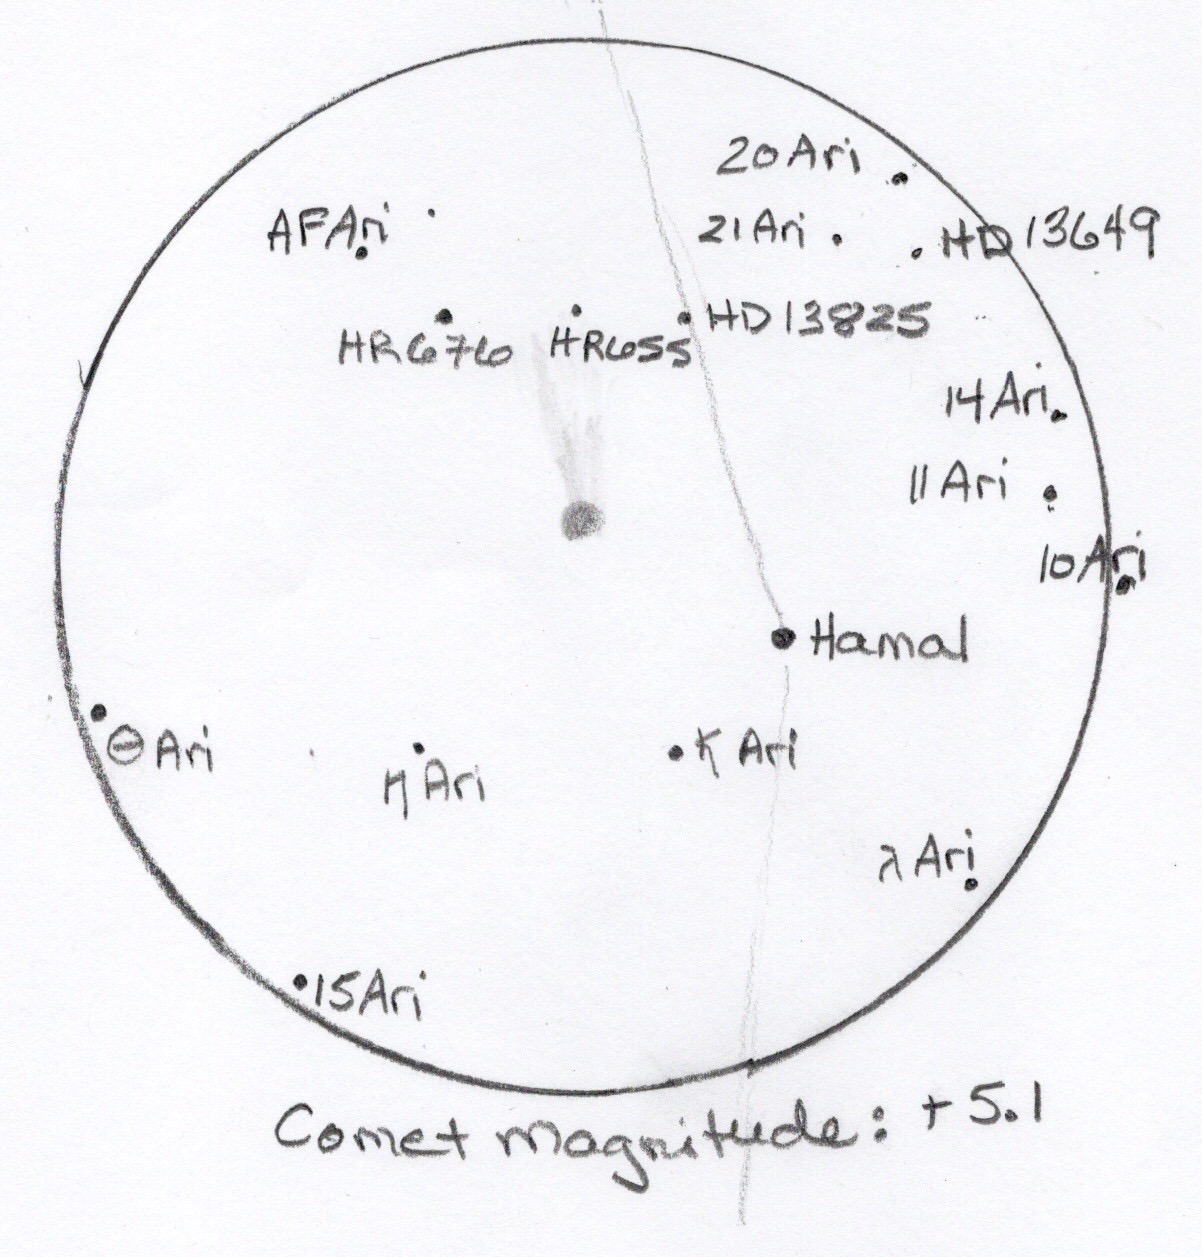 20 Ari
AF Ari
21 Ari
HD 13649
HR 676
HR 655
HD 13825
14 Ari
11 Ari
10 Ari
Hamal
θ Ari
η Ari
κ Ari
λ Ari
15 Ari
Comet magnitude: +5.1